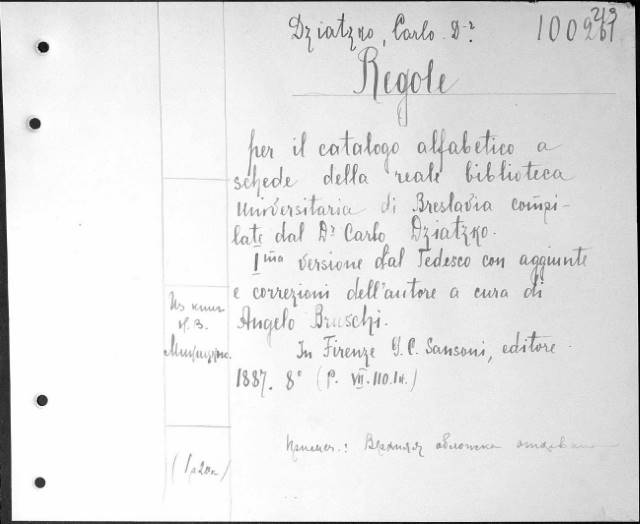 Dziatzko, Carlo Dr
Regole
per il catalogo alfabetico a
schede della reale biblioteca
Universitaria di Breslavia compi-
late dal Dr Carlo Dziatzko.
Ima versione dal Tedesco con aggiunte
e correzioni dell'autore a cura di
Angelo Bruschi.
In Firenze G. C. Sansoni, editore
1887. 8° (p. VII. 110. In.)
Из книг
И. В.
Примеч.: Верхняя обложка